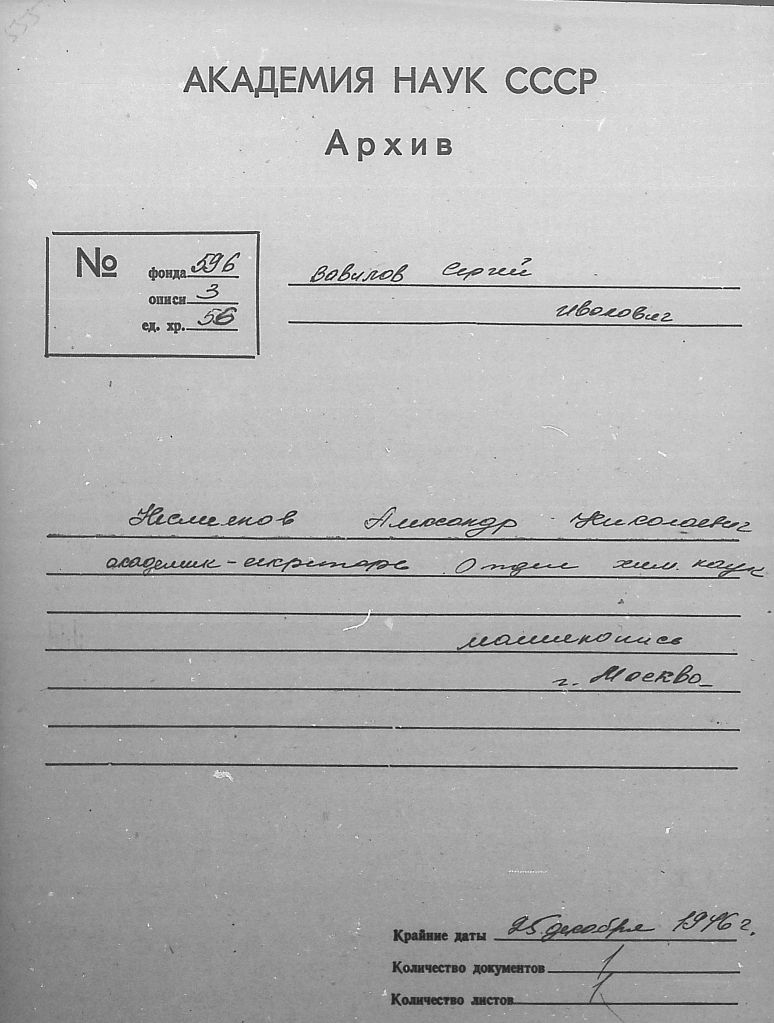 АКАДЕМИЯ НАУК СССР
Архив
№
фонда 596
описи 3
ед. хр. 56
Вавилов Сергей
Иванович
Несмеянов Александр Николаевич
академик-секретарь Отдел хим. наук
машинопись
г. Москва
Крайние даты 25 декабря 1946 г.
Количество документов 1
Количество листов 1